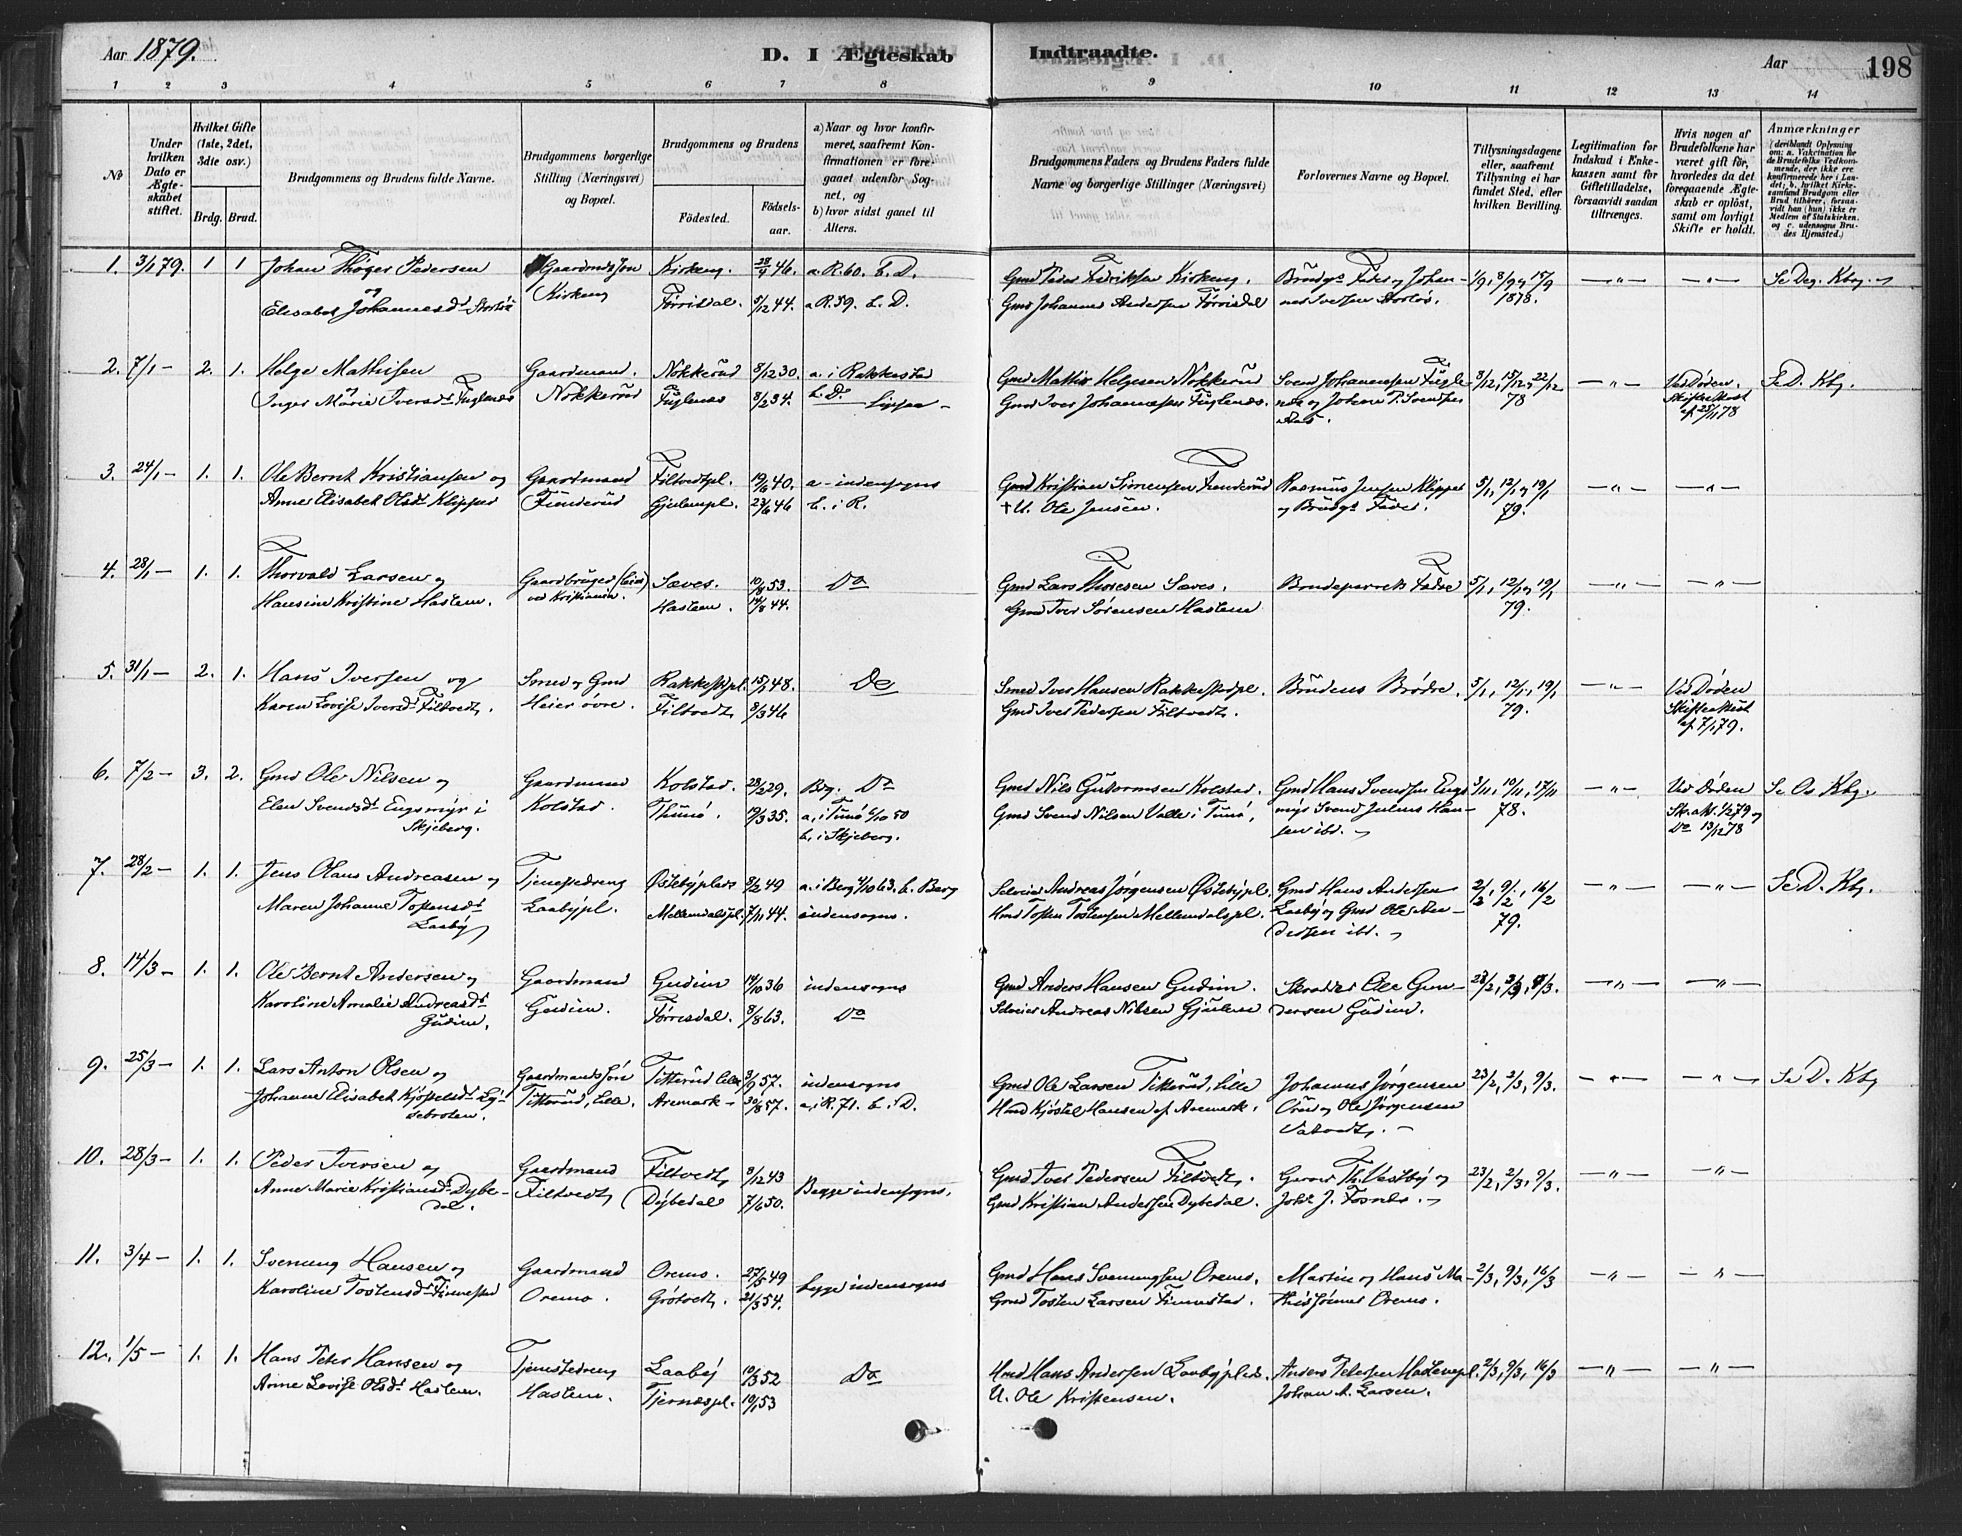 Aar 1879.
D. I Ægteskab Indtraadte.
Aar 198
1 2 3 4 5 6 7 8 9 10 11 12 13 14
No
Under hvilken Dato er Ægteskabet stiftet.
Hvilket Gifte (1ste, 2det, 3die osv.)
Brdg. Brud.
Brudgommens og Brudens fulde Navne.
Brudgommens borgerlige Stilling (Næringsvei) og Bopæl.
Brudgommens og Brudens
Fødested. Fødselsaar.
a) Naar og hvor konfirmeret, saafremt Konfirmationen er foregaaet udenfor Sognet, og
b) hvor sidst gaaet til Alters.
Brudgommens Faders og Brudens Faders fulde Navne og borgerlige Stillinger (Næringsvei)
Forlovernes Navne og Bopæl.
Tillysningsdagene eller, saafremt Tillysning ei har fundet Sted, efter hvilken Bevilling.
Legitimation for Indskud i Enkekassen samt for Giftetilladelse, forsaavidt saadan tiltrænges.
Hvis nogen af Brudefolkene har været gift før, hvorledes da det foregaaende Ægteskab er opløst, samt om lovligt Skifte er holdt.
Anmærkninger (deriblandt Oplysning om: a. Vakcination for de Brudefolks Vedkommende, der ikke ere konfirmerede her i Landet; b. hvilket Kirkesamfund Brudgom eller Brud tilhører, forsaavidt han (hun) ikke er Medlem af Statskirken. og c. udensogns Brudes Hjemsted.)
1. 3/1 79. 1 1 Johan Thøger Pedersen Gaardmdssøn Kirkeng. 28/9 46. a. R. 60. b. D. Gmd Peder Fedriksen Kirkeng. Brudgs Fader og Johan- 1/9, 8/9 og 15/9 —"— —"— Se Deg. Kbg.
og Kirkeng
Elisabet Johannesdr Stortøs Førrisdal. 5/12 44. a R. 59. b. D. Gmd Johannes Andersen Førrisdal nes Iversen Stortøs. 1878.
2. 7/1 — 2. 1. Helge Mathisen Gaardmand. Nokkerud 8/12 30. a. i Rakkestad Gmd Mathis Helgesen Nokkerud Svend Johannessen Fugle- 8/12, 15/12 og 22/12 —"— Ved Døden. Se D. Kbg.
og Nokkerud b. Do
Inger Marie Iversdr Fuglenæs Fuglenæs 8/2 34. Gmd Iver Johannessen Fuglenæs. næs og Johan P. Svendsen 78 Skifteattest
af 25/11 78
3. 24/1 — 1. 1. Ole Bernt Kristiansen og Gaardmand Filtvedtpl. 19/6 40. a - indensogns Gmd Kristian Simensen Funderud Rasmus Jensen Klippet 5/1, 12/1 og 19/1 —"— —"—
Anne Elisabet Olsdr Klippet Funderud Gjulempl. 23/6 46 b. i R. † U. Ole Jensen. og Brudgs Fader. 79.
4. 28/1 — 1. 1. Thorvald Larsen og Gaardbruger Sæves. 10/8 53. Do Gmd Lars Thoresen Sæves. Brudeparrets Fædre 5/1, 12/1 og 19/1 —"— —"—
Hansine Kristine Haslem. ved Kristiania. Haslem. 14/8 44. Gmd Iver Sørensen Haslem 79.
5. 31/1 — 2. 1. Hans Iversen og Smed og Gmd Rakkestpl. 15/7 48. Do Smed Iver Hansen Rakkestadpl. Brudens Brødre. 5/1, 12/1, 19/1 —"— Ved Døden
Karen Lovise Iversdr Filtvedt. Heier øvre. Filtvedt, 8/3 46 Gmd Iver Pedersen Filtvedt. 79. Skifteattest
af 7/1 79.
6. 7/2 — 3. 2. Gmd Ole Nilsen og Gaardmand Kolstad. 28/2 29. Bg. Do Gmd Nils Gutormsen Kolstad. Gmd Hans Svendsen Engs- 3/11, 10/11, 17/11 —"— Ved Døden Se Os Kbg.
Elen Svendsdr Engsmyr i Kolstad. Thunø. 19/3 35. a. i Tunø 6/10 50 Gmd Svend Nilsen Valle i Tunø, myr Svend Julius Han- 78. Sk. att. 1/2 79 og
Skjeberg. b. i Skjeberg. sen ibd. Do 13/12 78
7. 28/2 — 1. 1. Jens Olaus Andreasen og Tjenestedreng Østebyplads 8/2 49 a. i Berg 4/10 63. b. Berg Selveier Andreas Jørgensen Østebypl. Gmd Hans Andersen 2/2, 9/2, 16/2 —"— —"— Se D. Kbg.
Maren Johanne Tostensdr Laabypl. Mellemdalspl. 7/11 44. indensogns. Hmd Tosten Tostensen Mellemdalspl. Laaby og Gmd Ole An- 79.
Laaby dersen ibd.
8. 14/3 — 1. 1. Ole Bernt Andersen og Gaardmand Gudim 14/10 36 indensogns Gmd Anders Hansen Gudim. Skrædder Ole Gun- 23/2, 2/3, 9/3. —"— —"—
Karoline Amalie Andreasdr Gudim. Førrisdal. 8/8 63. Do Selveier Andreas Nilsen Gjulem dersen Gudim.
Gudim.
9. 25/3 — 1. 1. Lars Anton Olsen og Gaardmandssøn Titterud lille 3/9 57. indensogns Gmd Ole Larsen Titterud, lille Johannes Jørgensen 23/2, 2/3, 9/3. —"— —"— Se D. Kbg
Johanne Elisabet Kjøstelsdr Ly- Titterud, lille. Aremark — 30/8 57. a. i R. 71. b. i D. Hmd Kjøstel Hansen af Aremark. og Ole Jørgensen
sebroten.
10. 28/3 — 1. 1. Peder Iversen og Gaardmand Filtvedt, 8/12 43 Begge indensogns. Gmd Iver Pedersen Filtvedt. Th. Vestby og 23/2, 2/3, 9/3. —"— —"—
Anne Marie Kristiansdr Dybe- Filtvedt, Dybedal 7/6 50. Gmd Kristian Andersen Dybedal. Johs J. Fosnæs.
dal.
11. 3/4 — 1. 1. Svenung Hansen og Gaardmand Oremo. 27/5 49 begge indensogns Gmd Hans Svenungsen Oremo. Martin og Hans Ma- 2/3, 9/3, 16/3 —"— —"—
Karoline Tostensdr Finnestad Oremo. Grøtvedt, 21/3 54. Gmd Tosten Larsen Finnestad. thissønner Oremo.
12. 1/5 — 1. 1. Hans Peter Hansen og Tjenestedreng Laaby 10/3 52 Do Hmd Hans Andersen Laabyplads. Anders Petersen Haslemspl. 2/3, 9/3, 16/3 —"— —"—
Anne Lovise Olsdr Haslem. Haslem. Tjernæspl. 10/1 53 U. Ole Kristensen. Johan A. Larsen.